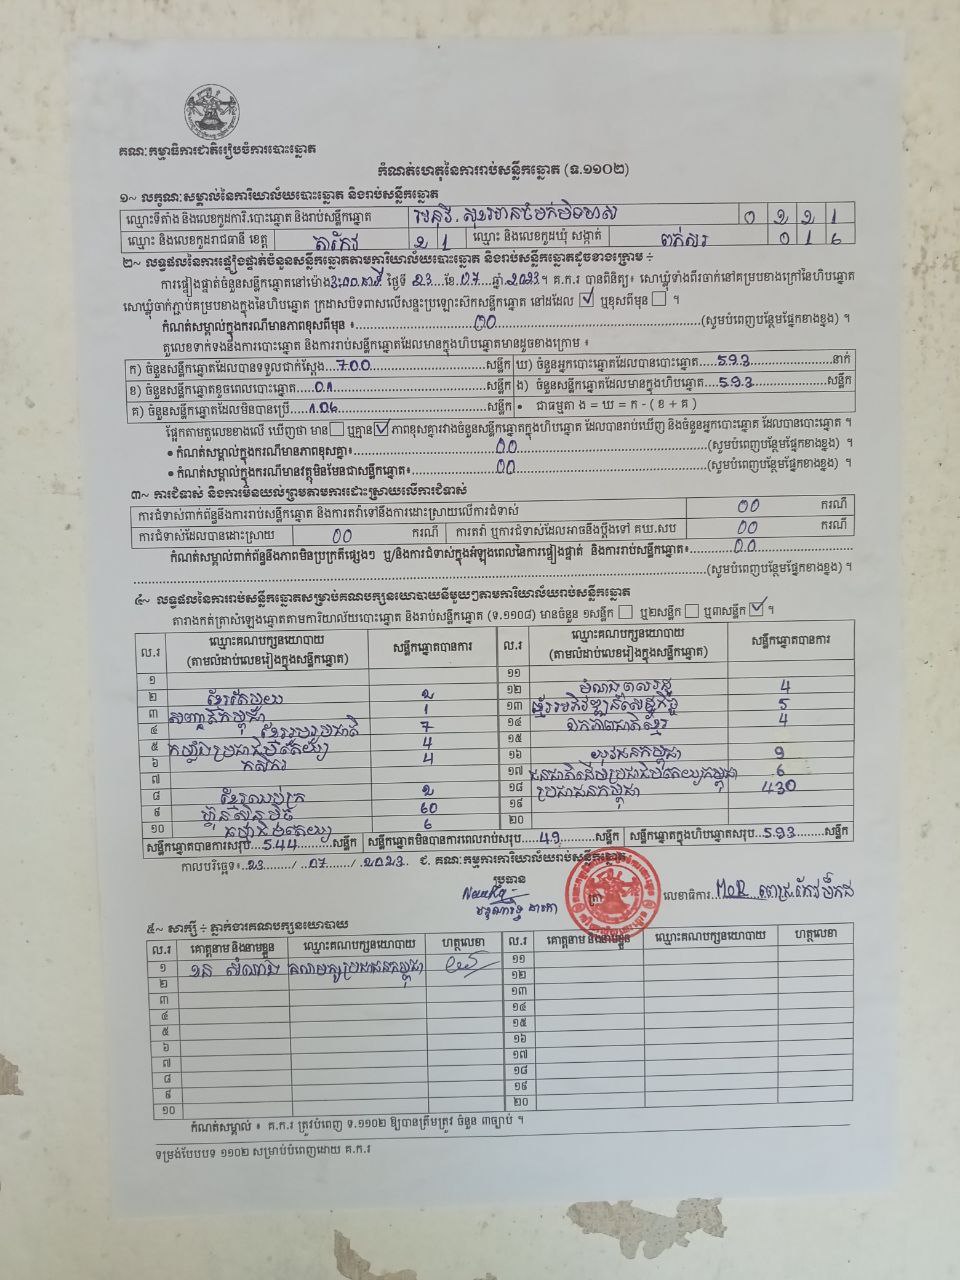 គណៈកម្មាធិការជាតិរៀបចំការបោះឆ្នោត
កំណត់ហេតុនៃការរាប់សន្លឹកឆ្នោត (ទ.១១០២)
១~ លក្ខណៈសម្គាល់នៃការិយាល័យបោះឆ្នោត និងរាប់សន្លឹកឆ្នោត
ឈ្មោះទីតាំង និងលេខកូដការិ.បោះឆ្នោត និងរាប់សន្លឹកឆ្នោត 0 2 2 1
ឈ្មោះ និងលេខកូដរាជធានី ខេត្ត តាកែវ 2 1 ឈ្មោះ និងលេខកូដឃុំ សង្កាត់ ពក់សរ 0 1 6
២~ លទ្ធផលនៃការផ្ទៀងផ្ទាត់ចំនួនសន្លឹកឆ្នោតតាមការិយាល័យបោះឆ្នោត និងរាប់សន្លឹកឆ្នោតដូចខាងក្រោម ÷
ការផ្ទៀងផ្ទាត់ចំនួនសន្លឹកឆ្នោតនៅម៉ោង 3:00 នាទី ថ្ងៃទី 23 ខែ 07 ឆ្នាំ 2023 ។ គ.ក.រ បានពិនិត្យ៖ សោឃ្លុំទាំងពីរចាក់នៅគម្របខាងក្រៅនៃហិបឆ្នោត
សោឃ្លុំចាក់ភ្ជាប់គម្របខាងក្នុងនៃហិបឆ្នោត ក្រដាសបិទពាសលើសន្ទះប្រឡោះស៊កសន្លឹកឆ្នោត នៅដដែល ☑ ឬខុសពីមុន ☐ ។
កំណត់សម្គាល់ក្នុងករណីមានភាពខុសពីមុន ៖ 00 (សូមបំពេញបន្ថែមផ្នែកខាងខ្នង) ។
តួលេខទាក់ទងនឹងការបោះឆ្នោត និងការរាប់សន្លឹកឆ្នោតដែលមានក្នុងហិបឆ្នោតមានដូចខាងក្រោម ៖
ក) ចំនួនសន្លឹកឆ្នោតដែលបានទទួលជាក់ស្តែង 700 សន្លឹក ឃ) ចំនួនអ្នកបោះឆ្នោតដែលបានបោះឆ្នោត 593 នាក់
ខ) ចំនួនសន្លឹកឆ្នោតខូចពេលបោះឆ្នោត 01 សន្លឹក ង) ចំនួនសន្លឹកឆ្នោតដែលមានក្នុងហិបឆ្នោត 593 សន្លឹក
គ) ចំនួនសន្លឹកឆ្នោតដែលមិនបានប្រើ 106 សន្លឹក • ជាធម្មតា ង = ឃ = ក - ( ខ + គ )
ផ្អែកតាមតួលេខខាងលើ ឃើញថា មាន ☐ ឬគ្មាន ☑ ភាពខុសគ្នារវាងចំនួនសន្លឹកឆ្នោតក្នុងហិបឆ្នោត ដែលបានរាប់ឃើញ និងចំនួនអ្នកបោះឆ្នោត ដែលបានបោះឆ្នោត ។
• កំណត់សម្គាល់ក្នុងករណីមានភាពខុសគ្នា៖ 00 (សូមបំពេញបន្ថែមផ្នែកខាងខ្នង) ។
• កំណត់សម្គាល់ក្នុងករណីមានវត្ថុមិនមែនជាសន្លឹកឆ្នោត៖ 00 (សូមបំពេញបន្ថែមផ្នែកខាងខ្នង) ។
៣~ ការជំទាស់ និងការមិនយល់ព្រមតាមការដោះស្រាយលើការជំទាស់
ការជំទាស់ពាក់ព័ន្ធនឹងការរាប់សន្លឹកឆ្នោត និងការតវ៉ាទៅនឹងការដោះស្រាយលើការជំទាស់ 00 ករណី
ការជំទាស់ដែលបានដោះស្រាយ 00 ករណី ការតវ៉ា ឬការជំទាស់ដែលអាចនឹងប្តឹងទៅ គឃ.សប 00 ករណី
កំណត់សម្គាល់ពាក់ព័ន្ធនឹងភាពមិនប្រក្រតីផ្សេងៗ ឬ/និងការជំទាស់ក្នុងអំឡុងពេលនៃការផ្ទៀងផ្ទាត់ និងការរាប់សន្លឹកឆ្នោត៖ 00
(សូមបំពេញបន្ថែមផ្នែកខាងខ្នង) ។
៤~ លទ្ធផលនៃការរាប់សន្លឹកឆ្នោតសម្រាប់គណបក្សនយោបាយនីមួយៗតាមការិយាល័យរាប់សន្លឹកឆ្នោត
តារាងកត់ត្រាសំឡេងឆ្នោតតាមការិយាល័យបោះឆ្នោត និងរាប់សន្លឹកឆ្នោត (ទ.១១០៨) មានចំនួន ១សន្លឹក ☐ ឬ២សន្លឹក ☐ ឬ៣សន្លឹក ☑ ។
ល.រ ឈ្មោះគណបក្សនយោបាយ (តាមលំដាប់លេខរៀងក្នុងសន្លឹកឆ្នោត) សន្លឹកឆ្នោតបានការ ល.រ ឈ្មោះគណបក្សនយោបាយ (តាមលំដាប់លេខរៀងក្នុងសន្លឹកឆ្នោត) សន្លឹកឆ្នោតបានការ
១ ១១
២ ខ្មែរតែមួយ 2 ១២ 4
៣ សញ្ជាតិកម្ពុជា 1 ១៣ ខ្មែរអភិវឌ្ឍន៍សេដ្ឋកិច្ច 5
៤ ខ្មែររួបរួមជាតិ 7 ១៤ ឯកភាពជាតិខ្មែរ 4
៥ កម្លាំងប្រជាធិបតេយ្យ 4 ១៥
៦ កសិករ 4 ១៦ យុវជនកម្ពុជា 9
៧ ១៧ ជនជាតិដើមប្រជាធិបតេយ្យកម្ពុជា 6
៨ ខ្មែរឈប់ក្រ 2 ១៨ ប្រជាជនកម្ពុជា 430
៩ ហ៊្វុនស៊ិនប៉ិច 60 ១៩
១០ 6 ២០
សន្លឹកឆ្នោតបានការសរុប 544 សន្លឹក សន្លឹកឆ្នោតមិនបានការពេលរាប់សរុប 49 សន្លឹក សន្លឹកឆ្នោតក្នុងហិបឆ្នោតសរុប 593 សន្លឹក
កាលបរិច្ឆេទ៖ 23 / 07 / 2023 ជ. គណៈកម្មការការិយាល័យរាប់សន្លឹកឆ្នោត
ប្រធាន
ត្រា លេខាធិការ
៥~ សាក្សី ÷ ភ្នាក់ងារគណបក្សនយោបាយ
ល.រ គោត្តនាម និងនាមខ្លួន ឈ្មោះគណបក្សនយោបាយ ហត្ថលេខា ល.រ គោត្តនាម និងនាមខ្លួន ឈ្មោះគណបក្សនយោបាយ ហត្ថលេខា
១ សំណាង គណបក្សប្រជាជនកម្ពុជា ១១
២ ១២
៣ ១៣
៤ ១៤
៥ ១៥
៦ ១៦
៧ ១៧
៨ ១៨
៩ ១៩
១០ ២០
កំណត់សម្គាល់ ៖ គ.ក.រ ត្រូវបំពេញ ទ.១១០២ ឱ្យបានត្រឹមត្រូវ ចំនួន ៣ច្បាប់ ។
ទម្រង់បែបបទ ១១០២ សម្រាប់បំពេញដោយ គ.ក.រ